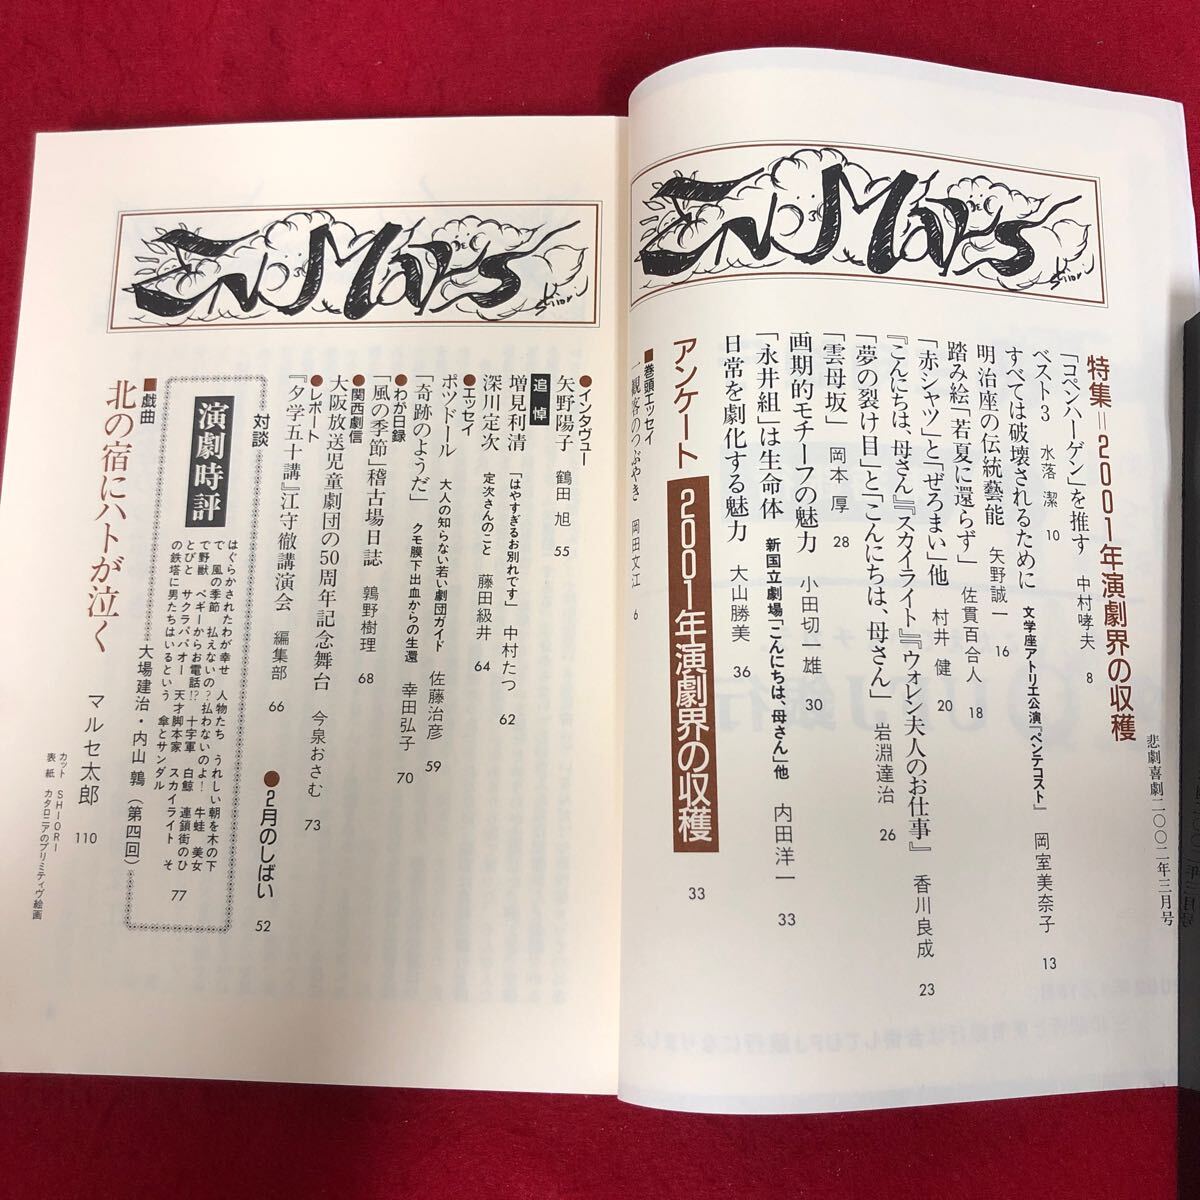 悲劇喜劇二〇〇二年三月号
特集＝2001年演劇界の収穫
「コペンハーゲン」を推す 中村哮夫 8
ベスト3 水落 潔 10
すべては破壊されるために 文学座アトリエ公演「ペンテコスト」 岡室美奈子 13
明治座の伝統藝能 矢野誠一 16
踏み絵「若夏に還らず」 佐貫百合人 18
「赤シャツ」と「ぜろまい」他 村井 健 20
『こんにちは、母さん』『スカイライト』『ウォレン夫人のお仕事』 香川良成 23
「夢の裂け目」と「こんにちは、母さん」 岩淵達治 26
「雲母坂」 岡本 厚 28
画期的モチーフの魅力 小田切一雄 30
「永井組」は生命体 新国立劇場「こんにちは、母さん」他 内田洋一 33
日常を劇化する魅力 大山勝美 36
アンケート 2001年演劇界の収穫 33
■巻頭エッセイ
一観客のつぶやき 岡田文江 6
En Mars
Shiori
En Mars
Shiori
●インタヴュー
矢野陽子 鶴田 旭 55
追悼
増見利清 「はやすぎるお別れです」 中村たつ 62
深川定次 定次さんのこと 藤田級井 64
●エッセイ
ポツドール 大人の知らない若い劇団ガイド 佐藤治彦 59
「奇跡のようだ」 クモ膜下出血からの生還 幸田弘子 70
●わが日録
「風の季節」稽古場日誌 鶉野樹理 68
●関西劇信
大阪放送児童劇団の50周年記念舞台 今泉おさむ 73
●レポート
『夕学五十講』江守徹講演会 編集部 66
●2月のしばい 52
対談
演劇時評
はぐらかされたわが幸せ 人物たち うれしい朝を木の下
で 風の季節 払えないの？払わないのよ！ 牛蛙 美女
で野獣 ペギーからお電話!? 十字軍 白鯨 連鎖街のひ
とびと サクラパパオー 天才脚本家 スカイライト そ
の鉄塔に男たちはいるという 傘とサンダル
77
大場建治・内山鶉（第四回）
■戯曲
北の宿にハトが泣く マルセ太郎 110
カット SHIORI
表 紙 カタロニアのプリミティヴ絵画